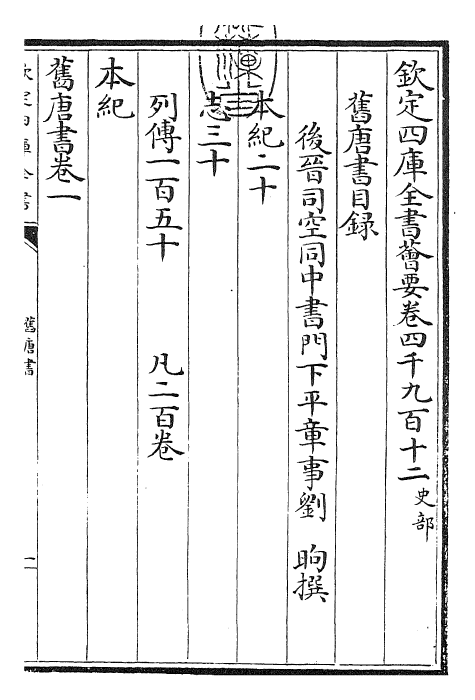 欽定四庫全書薈要卷四千九百十二 史部
舊唐書目録
後晉司空同中書門下平章事劉 昫撰
本紀二十
志三十
列傳一百五十 凡二百卷
本紀
舊唐書卷一
欽定四庫全書
舊唐書
一